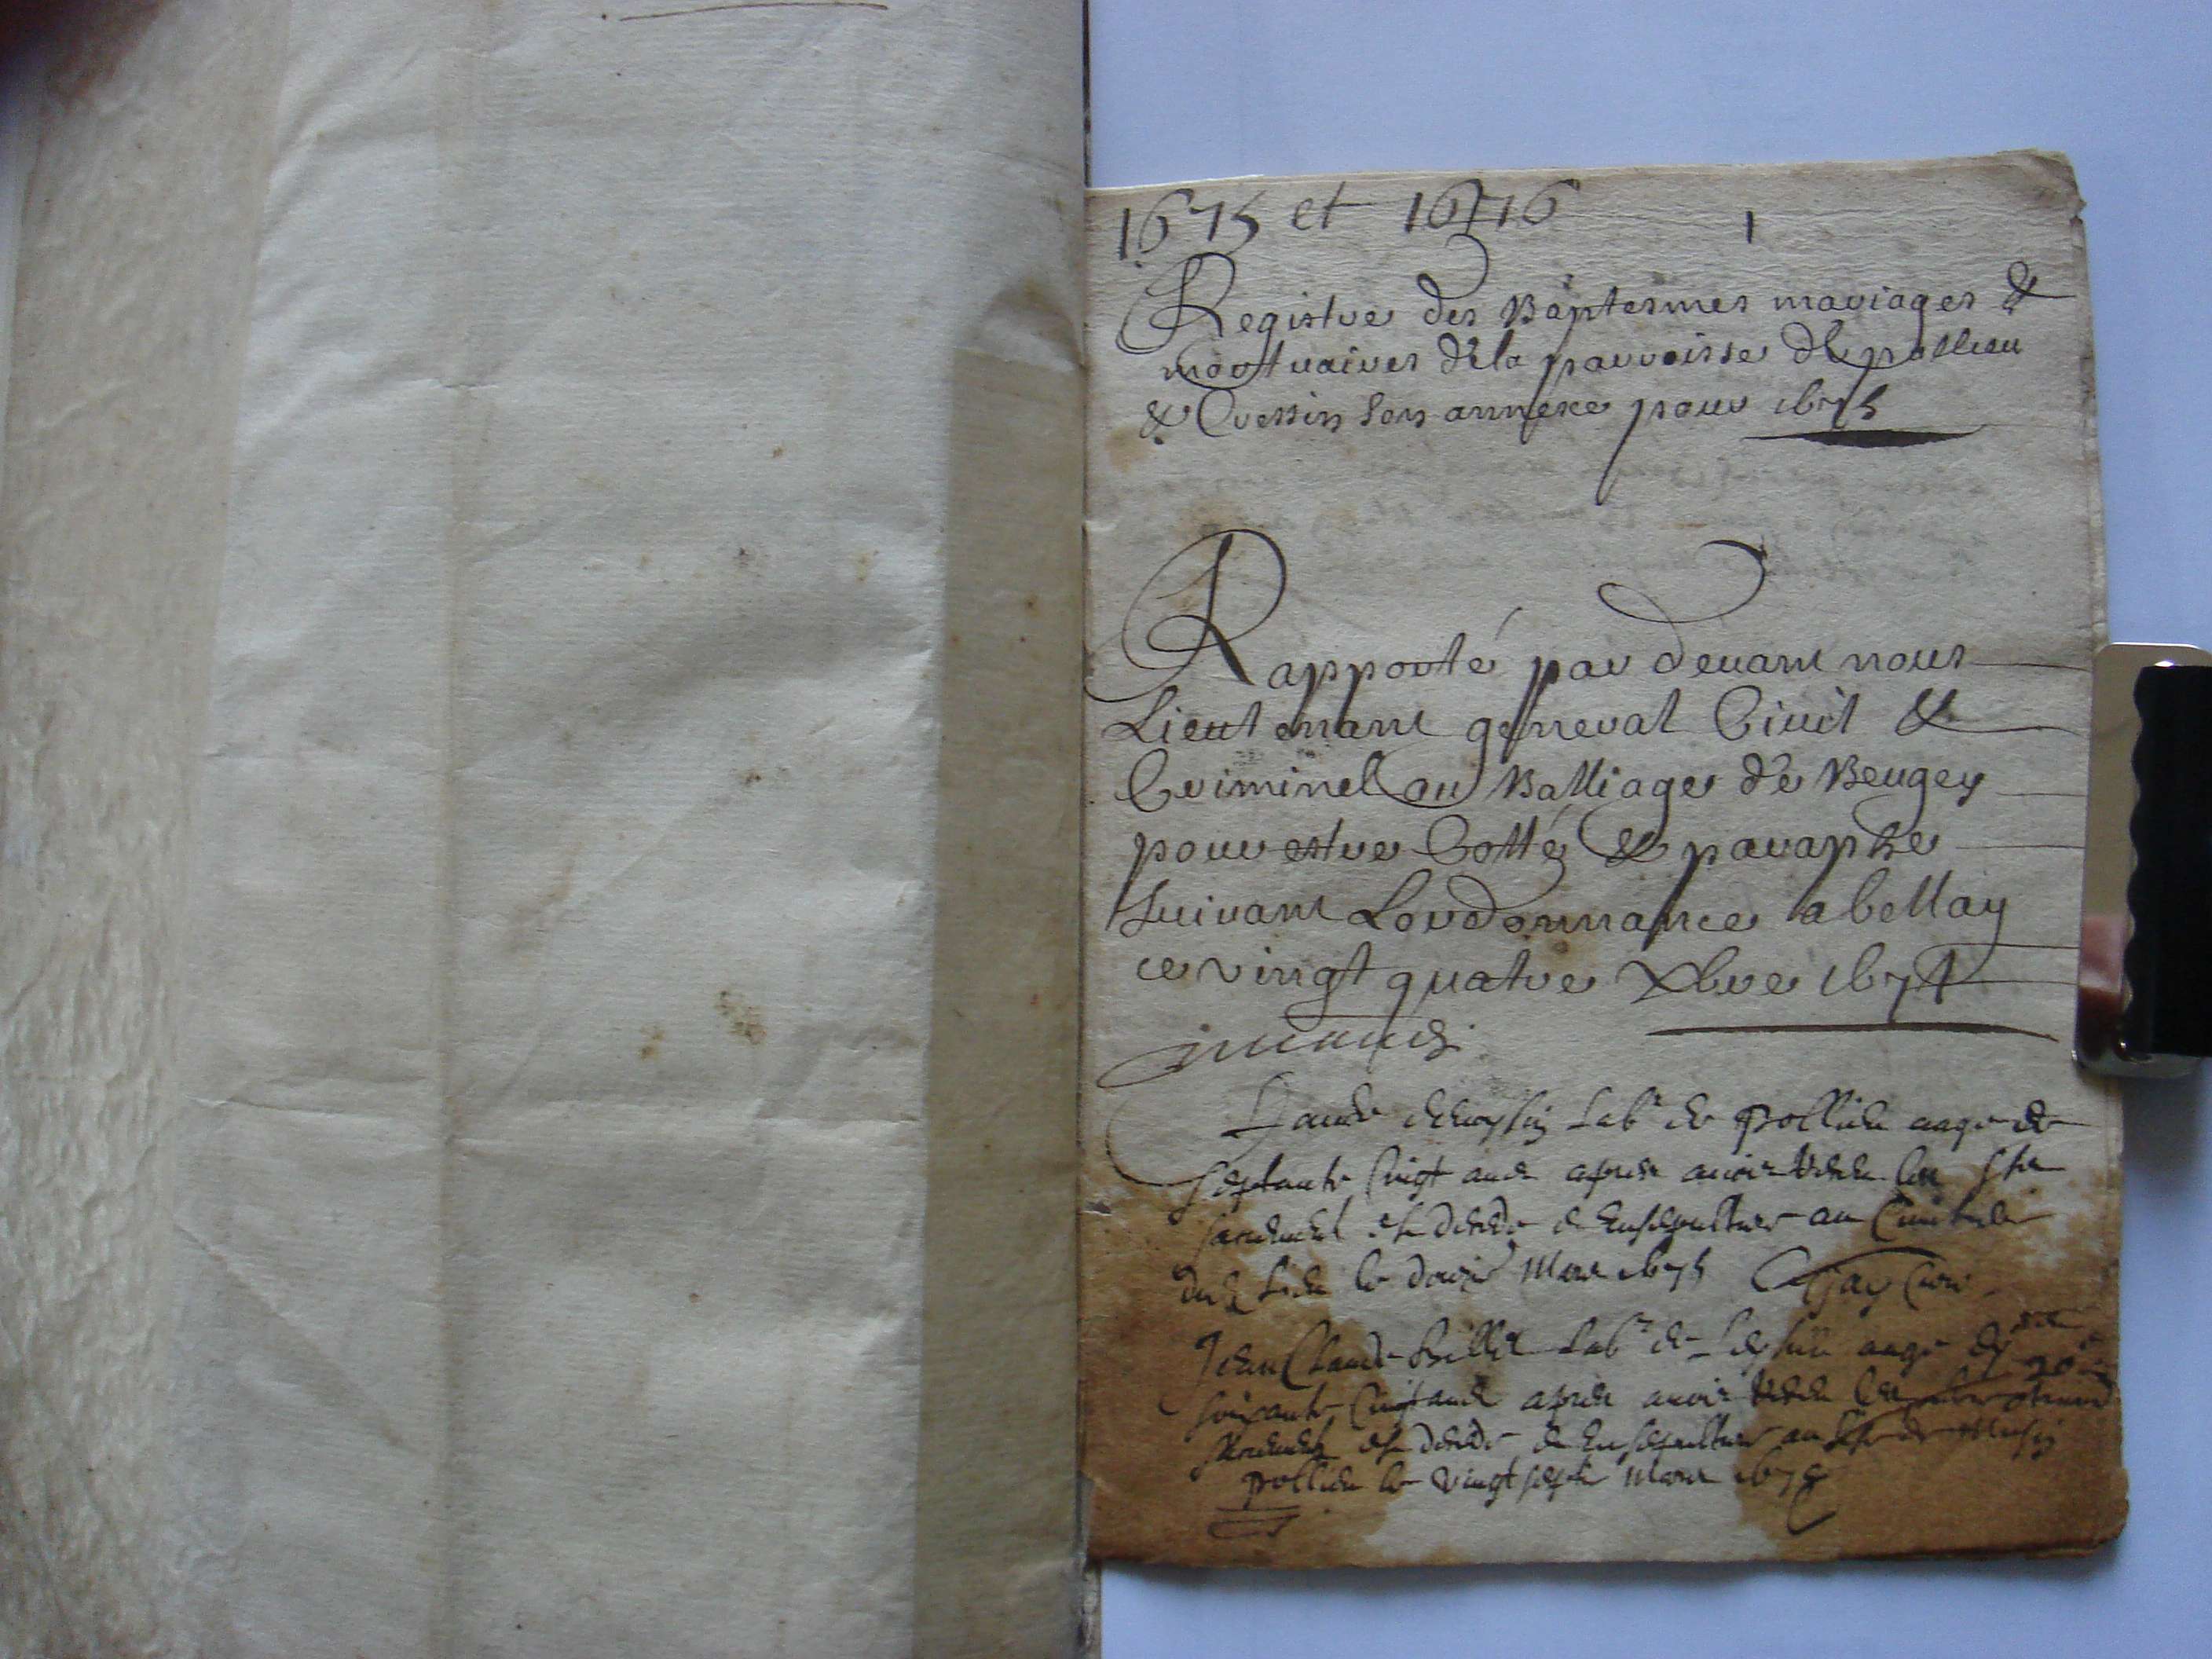 1675 et 1676
1
Registre des Baptesmes mariages &
mortuaires de la parroisse de pollieu
& Cressin son annexe pour 1675
Rapporté par devant nous
Lieutenant general Civil &
Criminel au Balliage de Beugey
pour estre Cotté & paraphe
suivant Lordonnance a bellay
ce vingt quatre Xbre 1674
Claude labr de Pollieu aage de
septante Cinqt ans apres avoir receu les sts
sacrements est decede & ensepulturé au Cimitiere
dud lieu le mars 1675 curé
Jean Claude Billiet Labr de aage de
soixante Cinqt ans apres avoir receu les
sacrements est decede & ensepulturé
pollieu le vingt sept mars 1675